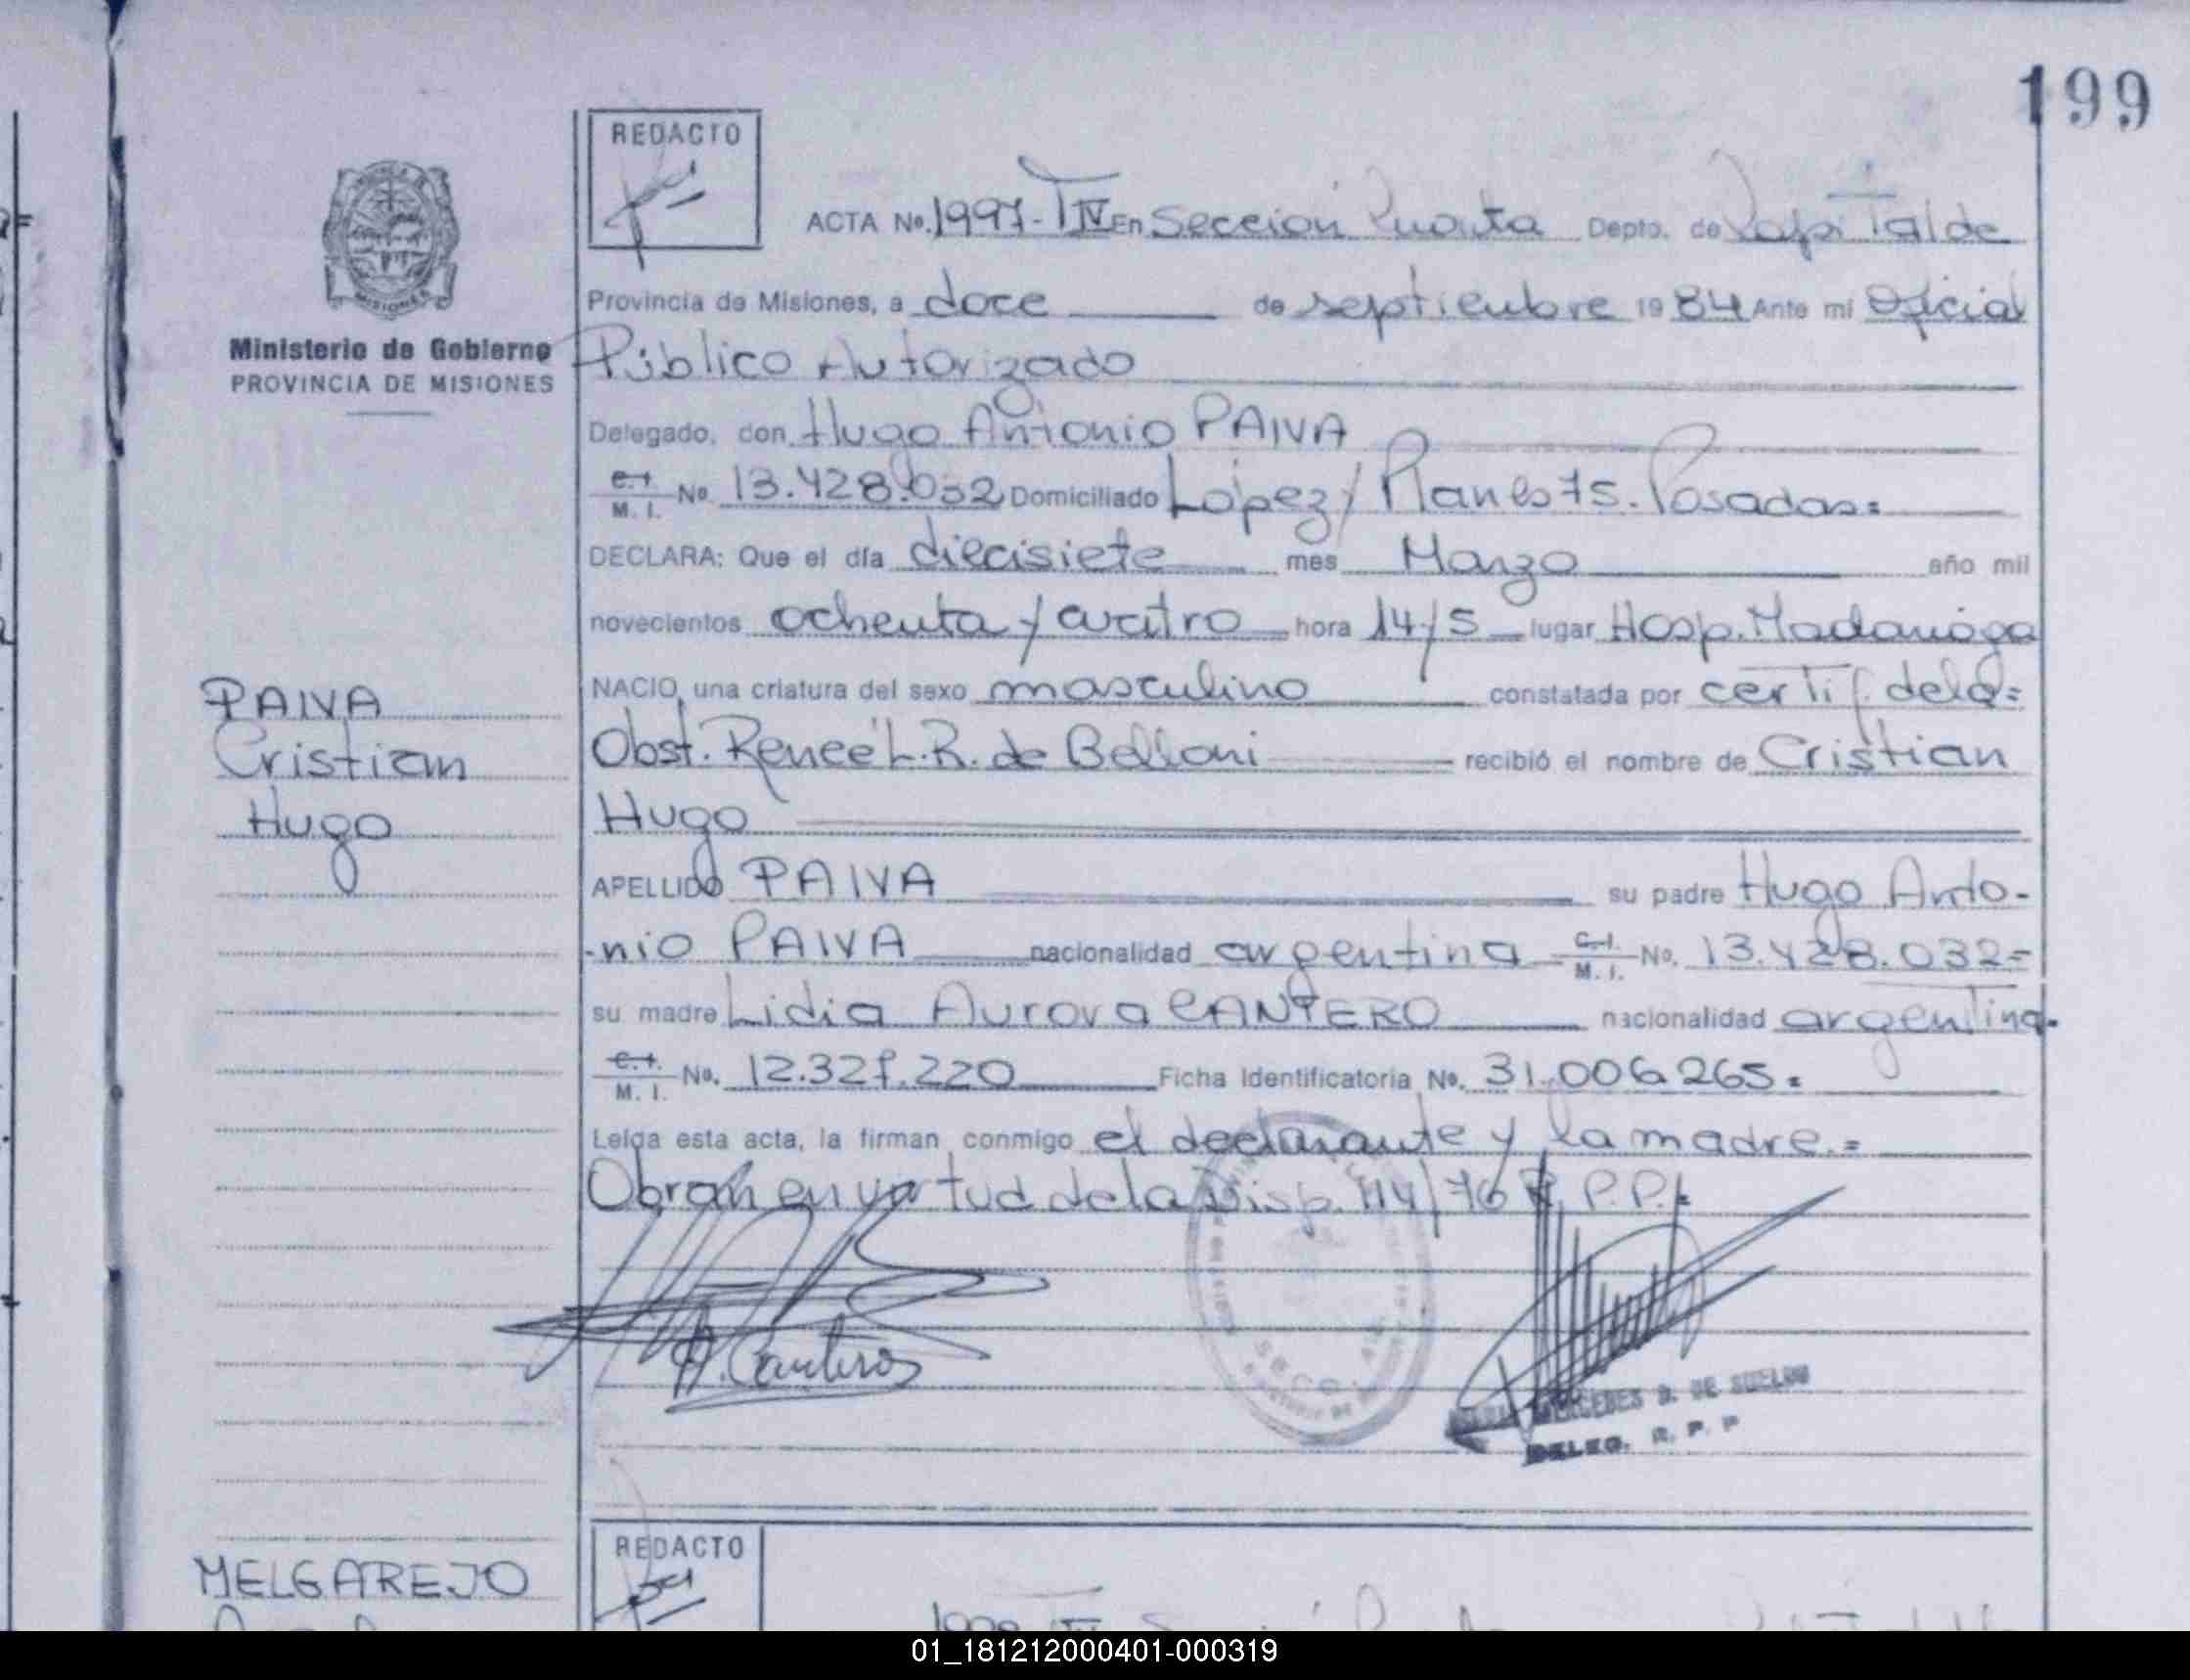 199
REDACTO
ACTA No. 1997-TIV En Sección Cuarta Depto. de Capital de
Provincia de Misiones, a doce de septiembre 1984 Ante mi Oficial
Ministerio de Gobierno
PROVINCIA DE MISIONES
Público Autorizado
Delegado, don Hugo Antonio PAIVA
C.I. M. I. No. 13.428.032 Domiciliado López y Planes 75. Posadas=
DECLARA: Que el día diecisiete mes Marzo año mil
novecientos ochenta y cuatro hora 14/5 lugar Hosp. Madariaga
PAIVA
Cristian
Hugo
NACIO una criatura del sexo masculino constatada por certif. dela=
Obst. Reneé L.R. de Belloni recibió el nombre de Cristian
Hugo
APELLIDO PAIVA su padre Hugo Anto-
-nio PAIVA nacionalidad argentina C.I. M. I. No. 13.428.032=
su madre Lidia Aurora CANTERO nacionalidad argentina.
C.I. M. I. No. 12.327.220 Ficha Identificatoria No. 31.006.265=
Leída esta acta, la firman conmigo el declarante y la madre.=
Obran en virtud de la Disp. 114/76 R.P.P.
MERCEDES D. DE
DELEG. R. P. P
REDACTO
MELGAREJO
01_181212000401-000319